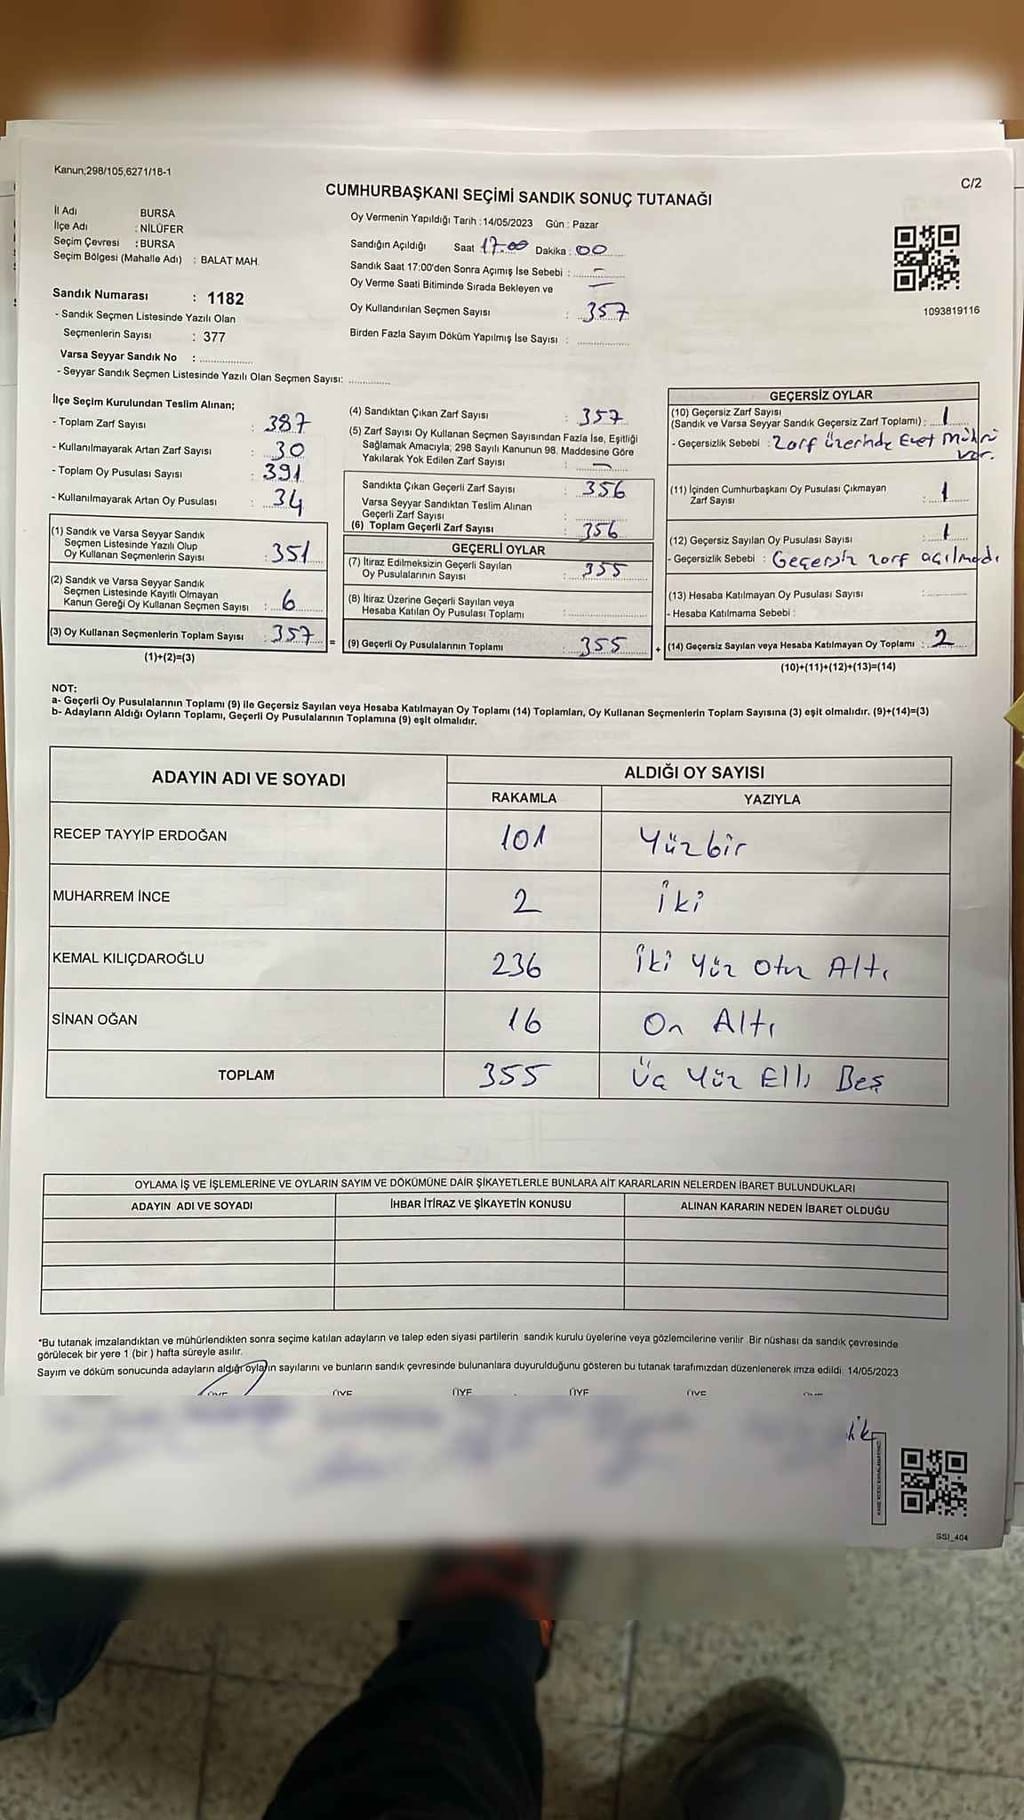 Kanun;298/105,6271/18-1
C/2
CUMHURBAŞKANI SEÇİMİ SANDIK SONUÇ TUTANAĞI
İl Adı BURSA
İlçe Adı : NİLÜFER
Seçim Çevresi : BURSA
Seçim Bölgesi (Mahalle Adı) : BALAT MAH.
Sandık Numarası : 1182
- Sandık Seçmen Listesinde Yazılı Olan
Seçmenlerin Sayısı : 377
Varsa Seyyar Sandık No :
- Seyyar Sandık Seçmen Listesinde Yazılı Olan Seçmen Sayısı:
Oy Vermenin Yapıldığı Tarih : 14/05/2023 Gün : Pazar
Sandığın Açıldığı Saat 17.00 Dakika : 00
Sandık Saat 17:00'den Sonra Açımış İse Sebebi : -
Oy Verme Saati Bitiminde Sırada Bekleyen ve -
Oy Kullandırılan Seçmen Sayısı : 357
Birden Fazla Sayım Döküm Yapılmış İse Sayısı :
1093819116
İlçe Seçim Kurulundan Teslim Alınan;
- Toplam Zarf Sayısı : 387
- Kullanılmayarak Artan Zarf Sayısı : 30
- Toplam Oy Pusulası Sayısı : 391
- Kullanılmayarak Artan Oy Pusulası : 34
(1) Sandık ve Varsa Seyyar Sandık
Seçmen Listesinde Yazılı Olup
Oy Kullanan Seçmenlerin Sayısı : 351
(2) Sandık ve Varsa Seyyar Sandık
Seçmen Listesinde Kayıtlı Olmayan
Kanun Gereği Oy Kullanan Seçmen Sayısı : 6
(3) Oy Kullanan Seçmenlerin Toplam Sayısı : 357 =
(1)+(2)=(3)
(4) Sandıktan Çıkan Zarf Sayısı : 357
(5) Zarf Sayısı Oy Kullanan Seçmen Sayısından Fazla İse, Eşitliği
Sağlamak Amacıyla; 298 Sayılı Kanunun 98. Maddesine Göre
Yakılarak Yok Edilen Zarf Sayısı : -
Sandıkta Çıkan Geçerli Zarf Sayısı : 356
Varsa Seyyar Sandıktan Teslim Alınan
Geçerli Zarf Sayısı :
(6) Toplam Geçerli Zarf Sayısı : 356
GEÇERLİ OYLAR
(7) İtiraz Edilmeksizin Geçerli Sayılan
Oy Pusulalarının Sayısı : 355
(8) İtiraz Üzerine Geçerli Sayılan veya
Hesaba Katılan Oy Pusulası Toplamı :
(9) Geçerli Oy Pusulalarının Toplamı : 355 +
GEÇERSİZ OYLAR
(10) Geçersiz Zarf Sayısı
(Sandık ve Varsa Seyyar Sandık Geçersiz Zarf Toplamı) : 1
- Geçersizlik Sebebi : Zarf üzerinde Evet Mührü
var.
(11) İçinden Cumhurbaşkanı Oy Pusulası Çıkmayan
Zarf Sayısı : 1
(12) Geçersiz Sayılan Oy Pusulası Sayısı : 1
- Geçersizlik Sebebi : Geçersiz zarf açılmadı
(13) Hesaba Katılmayan Oy Pusulası Sayısı :
- Hesaba Katılmama Sebebi :
(14) Geçersiz Sayılan veya Hesaba Katılmayan Oy Toplamı : 2
(10)+(11)+(12)+(13)=(14)
NOT:
a- Geçerli Oy Pusulalarının Toplamı (9) ile Geçersiz Sayılan veya Hesaba Katılmayan Oy Toplamı (14) Toplamları, Oy Kullanan Seçmenlerin Toplam Sayısına (3) eşit olmalıdır. (9)+(14)=(3)
b- Adayların Aldığı Oyların Toplamı, Geçerli Oy Pusulalarının Toplamına (9) eşit olmalıdır.
ADAYIN ADI VE SOYADI ALDIĞI OY SAYISI
RAKAMLA YAZIYLA
RECEP TAYYİP ERDOĞAN 101 Yüzbir
MUHARREM İNCE 2 İki
KEMAL KILIÇDAROĞLU 236 İki Yüz Otuz Altı
SİNAN OĞAN 16 On Altı
TOPLAM 355 Üç Yüz Elli Beş
OYLAMA İŞ VE İŞLEMLERİNE VE OYLARIN SAYIM VE DÖKÜMÜNE DAİR ŞİKAYETLERLE BUNLARA AİT KARARLARIN NELERDEN İBARET BULUNDUKLARI
ADAYIN ADI VE SOYADI İHBAR İTİRAZ VE ŞİKAYETİN KONUSU ALINAN KARARIN NEDEN İBARET OLDUĞU
*Bu tutanak imzalandıktan ve mühürlendikten sonra seçime katılan adayların ve talep eden siyasi partilerin sandık kurulu üyelerine veya gözlemcilerine verilir. Bir nüshası da sandık çevresinde
görülecek bir yere 1 (bir) hafta süreyle asılır.
Sayım ve döküm sonucunda adayların aldığı oyların sayılarını ve bunların sandık çevresinde bulunanlara duyurulduğunu gösteren bu tutanak tarafımızdan düzenlenerek imza edildi. 14/05/2023
ÜYE ÜYE ÜYE ÜYE
SSI_404